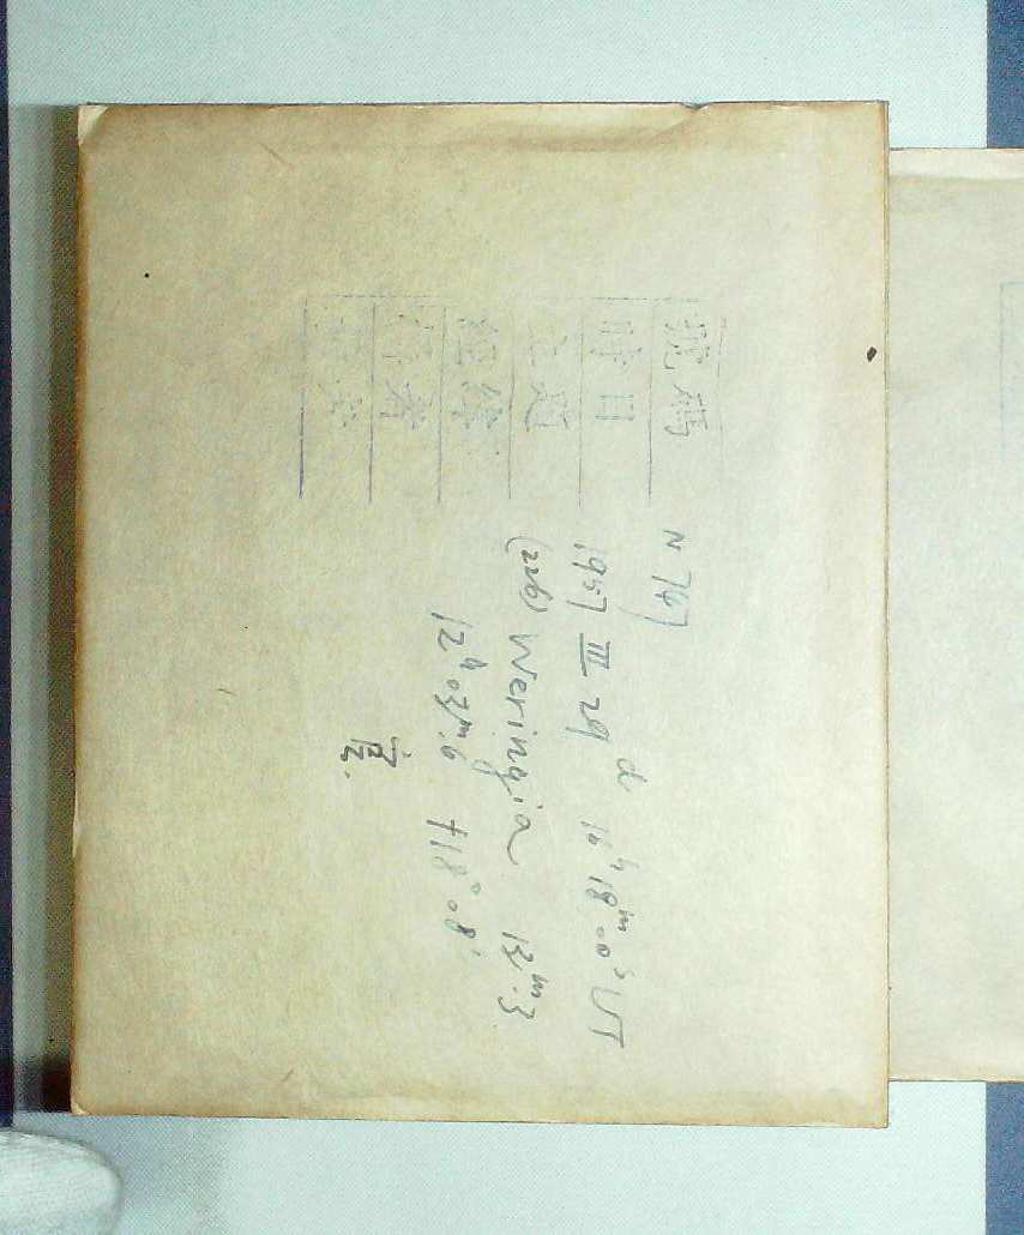 號碼 N 747
時日 1957 III 29 d 16h 18m 00s UT
主題 (226) Weringia 13m.3
經緯 12h 03m.6 +18° 08'